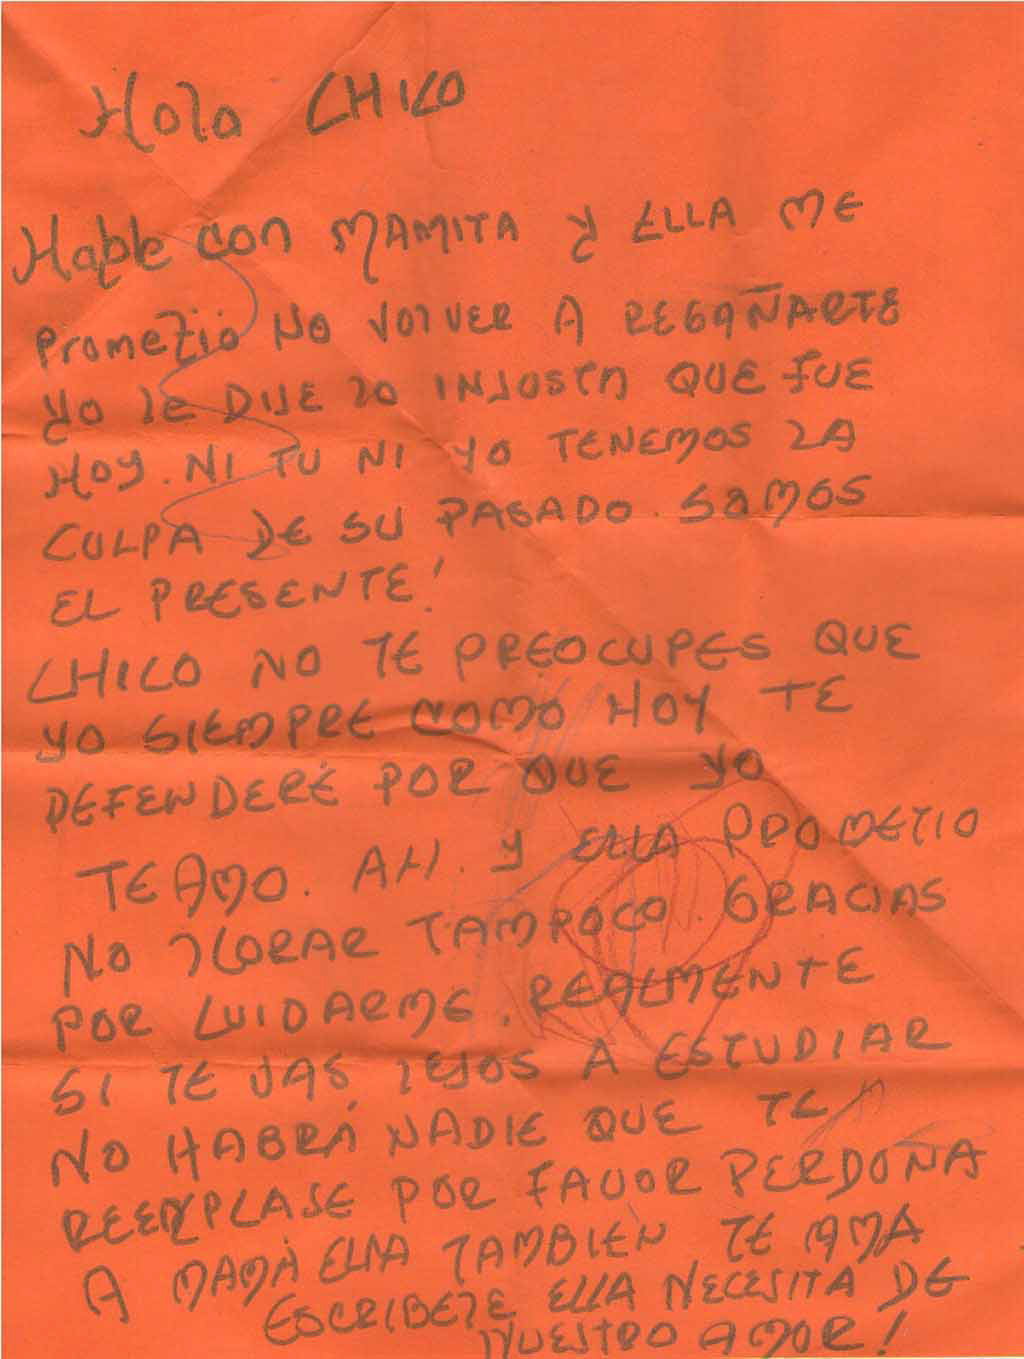 Hola CHICO
Hable con MAMITA y ELLA ME
PromeZio NO VOlVER A REGAÑARTE
YO lE DIJE lO INJUSTA QUE FUE
HOY. NI TU NI YO TENEMOS LA
CULPA DE SU PASADO. SOMOS
EL PRESENTE!
CHICO NO TE PREOCUPES QUE
YO SIEMPRE COMO HOY TE
DEFENDERÉ POR QUE YO
TE AMO. AH. Y ELLA PROMETIO
NO llORAR TAMPOCO. GRACIAS
POR CUIDARME. REALMENTE
SI TE VAS lEJOS A ESTUDIAR
NO HABRÁ NADIE QUE TE
REEMPLASE POR FAVOR PERDONA
A MAMÁ ELLA TAMBIEN TE AMA
ESCRIBElE ELLA NECESITA DE
NUESTRO AMOR!